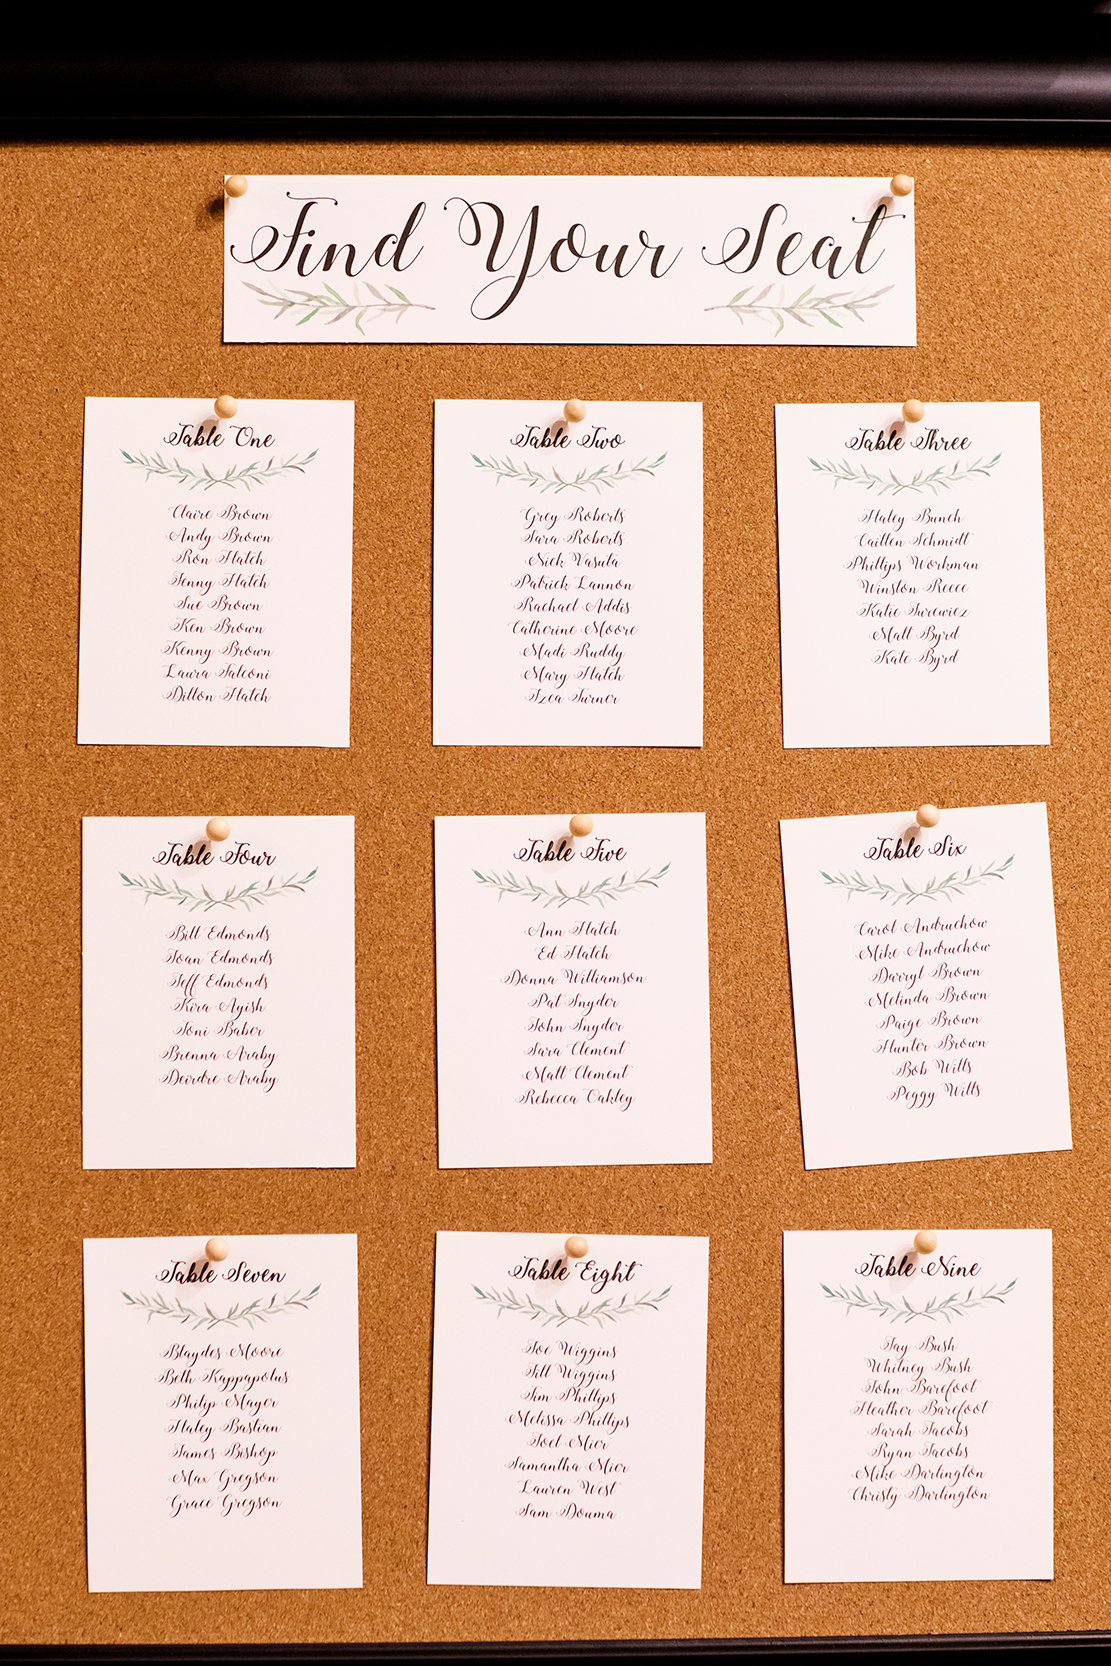 Find Your Seat
Table One
Claire Brown
Andy Brown
Ron Hatch
Jenny Hatch
Sue Brown
Ken Brown
Kenny Brown
Laura Falconi
Dillon Hatch
Table Two
Grey Roberts
Sara Roberts
Nick Vasuta
Patrick Lannon
Rachael Addis
Catherine Moore
Madi Ruddy
Mary Hatch
Izea Turner
Table Three
Haley Bunch
Caitlen Schmidt
Phillips Workman
Winston Reece
Katie Surewicz
Matt Byrd
Kate Byrd
Table Four
Bill Edmonds
Joan Edmonds
Jeff Edmonds
Kira Ayish
Toni Baber
Brenna Araby
Deirdre Araby
Table Five
Ann Hatch
Ed Hatch
Donna Williamson
Pat Snyder
John Snyder
Sara Clement
Matt Clement
Rebecca Oakley
Table Six
Carol Andruchow
Mike Andruchow
Darryl Brown
Melinda Brown
Paige Brown
Hunter Brown
Bob Wills
Peggy Wills
Table Seven
Blaydes Moore
Beth Kappapolus
Philip Mayer
Haley Bastian
James Bishop
Max Gregson
Grace Gregson
Table Eight
Joe Wiggins
Jill Wiggins
Jim Phillips
Melissa Phillips
Joel Mier
Samantha Mier
Lauren West
Sam Douma
Table Nine
Jay Bush
Whitney Bush
John Barefoot
Heather Barefoot
Sarah Jacobs
Ryan Jacobs
Mike Darlington
Christy Darlington